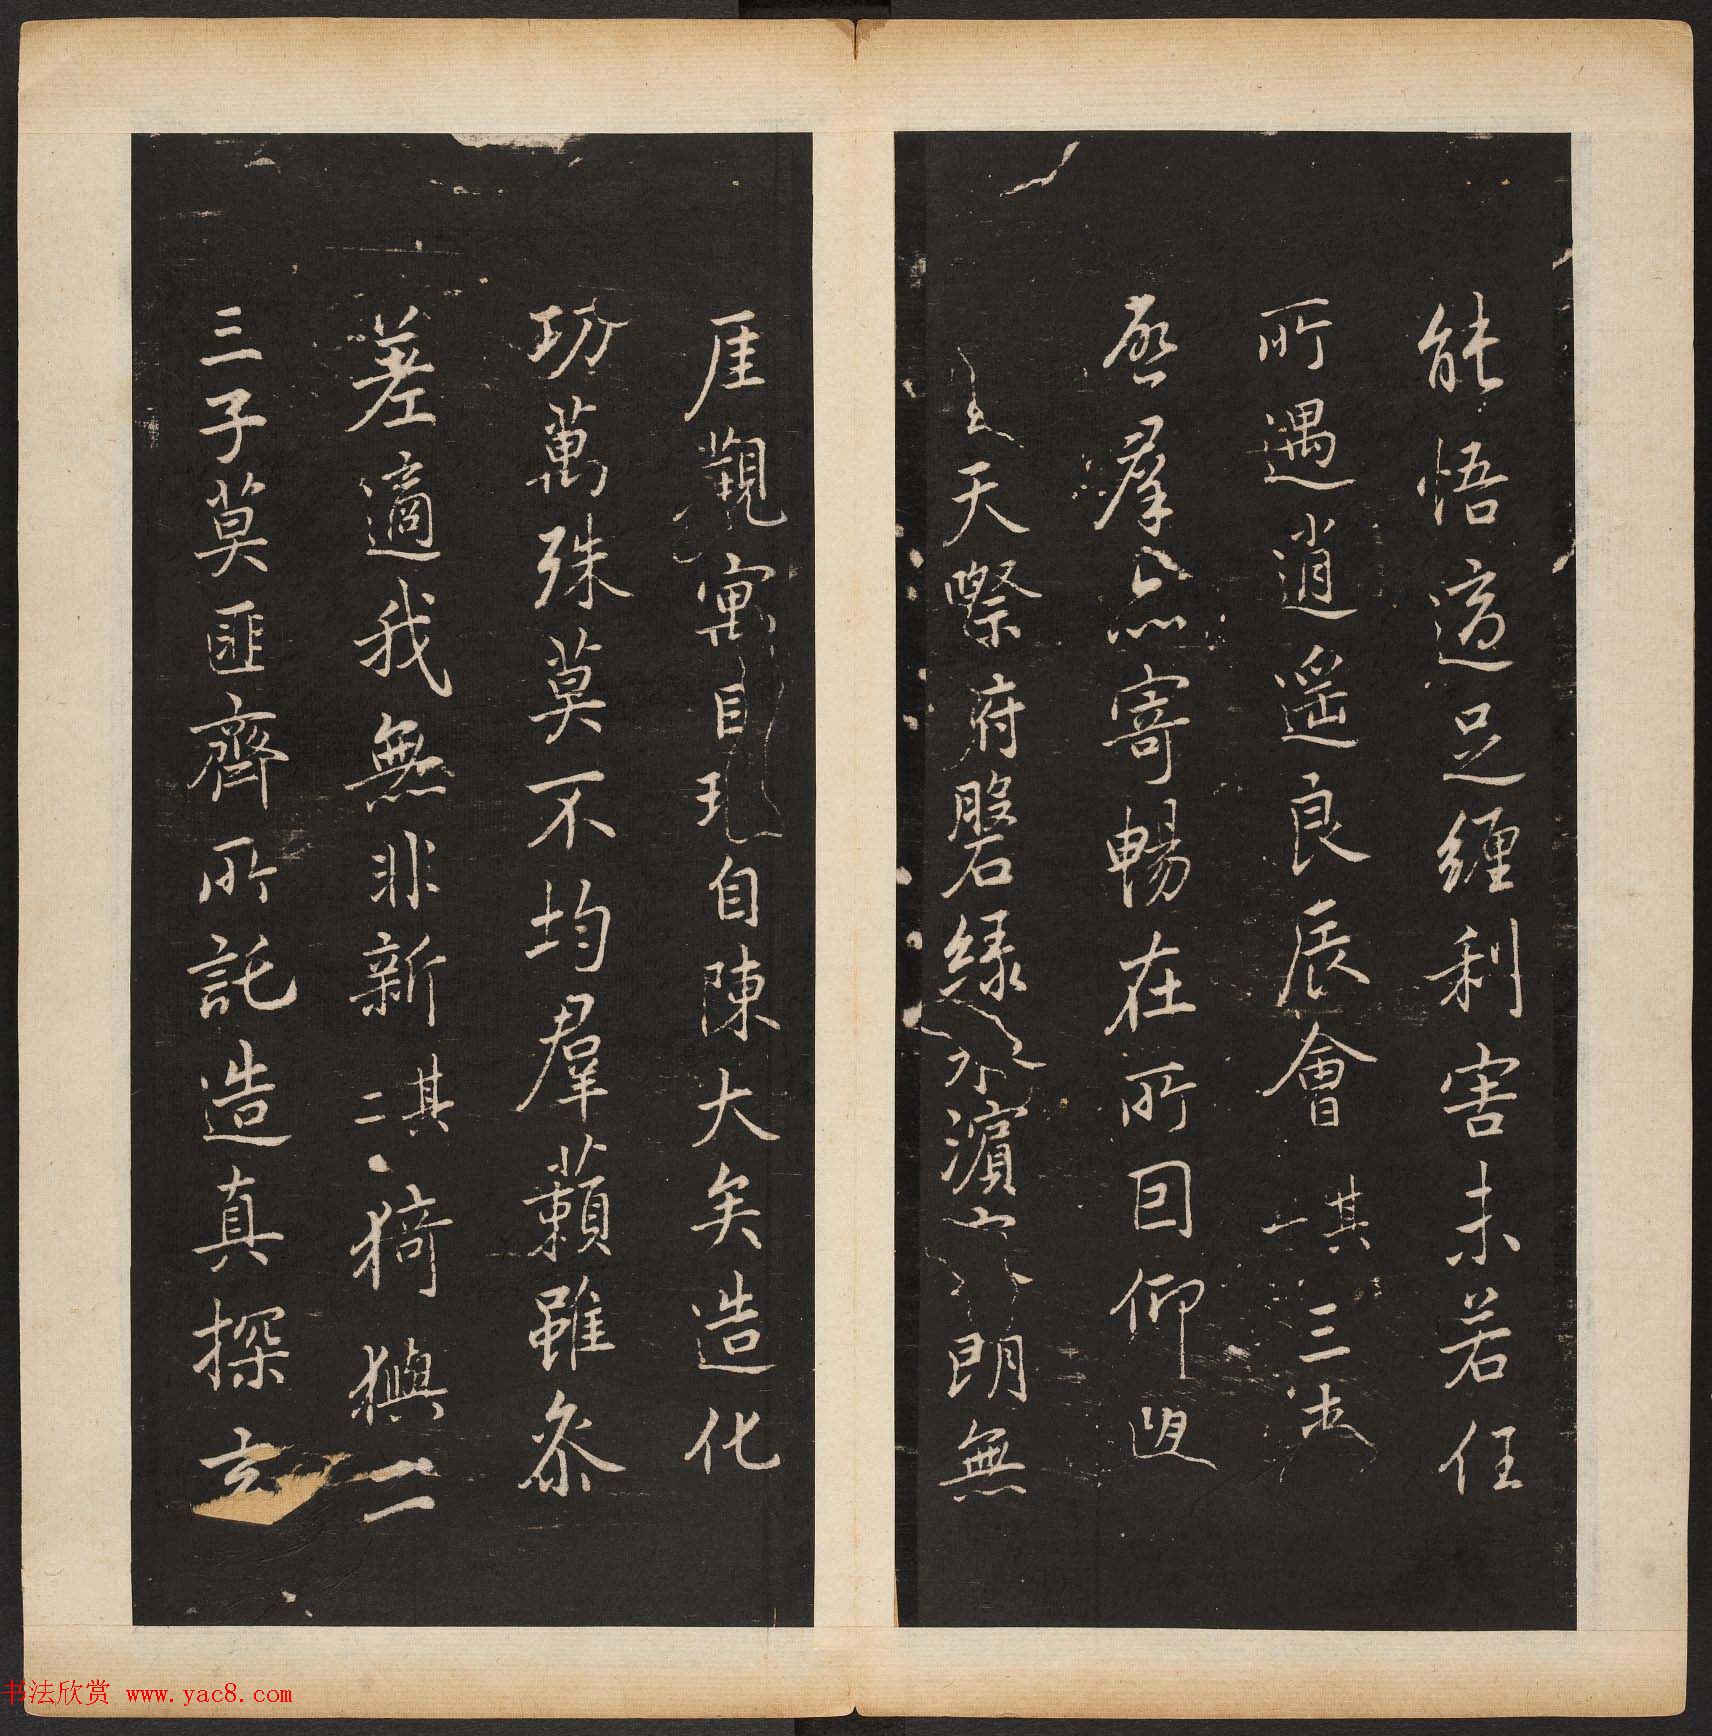 能悟適足纏利害未若任
所遇逍遥良辰會其一三春
啓群品寄暢在所因仰望
天際俯磐緑水濱朗無
厓觀寓目理自陳大矣造化
功萬殊莫不均群藾雖参
差適我無非新其二猗與二
三子莫匪齊所託造真探玄
书法欣赏 www.yac8.com